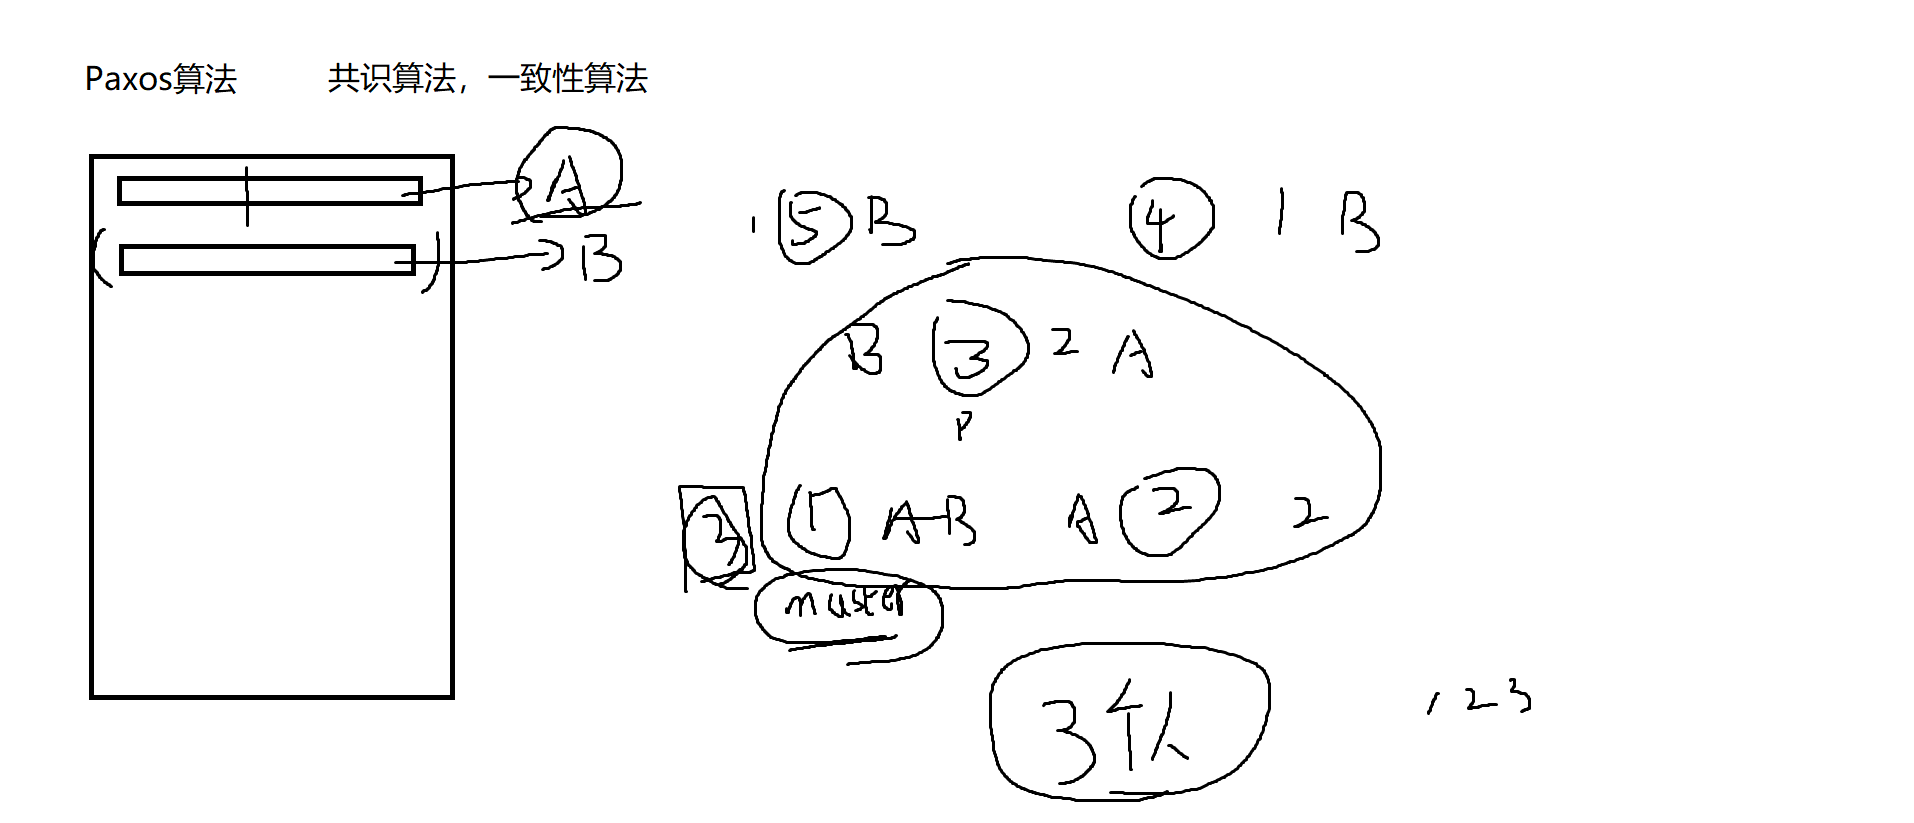 Paxos算法 共识算法，一致性算法
A
B
1 5 B 4 1 B
B 3 2 A
P
3 1 A-B A 2 2
master
3个人
1 2 3